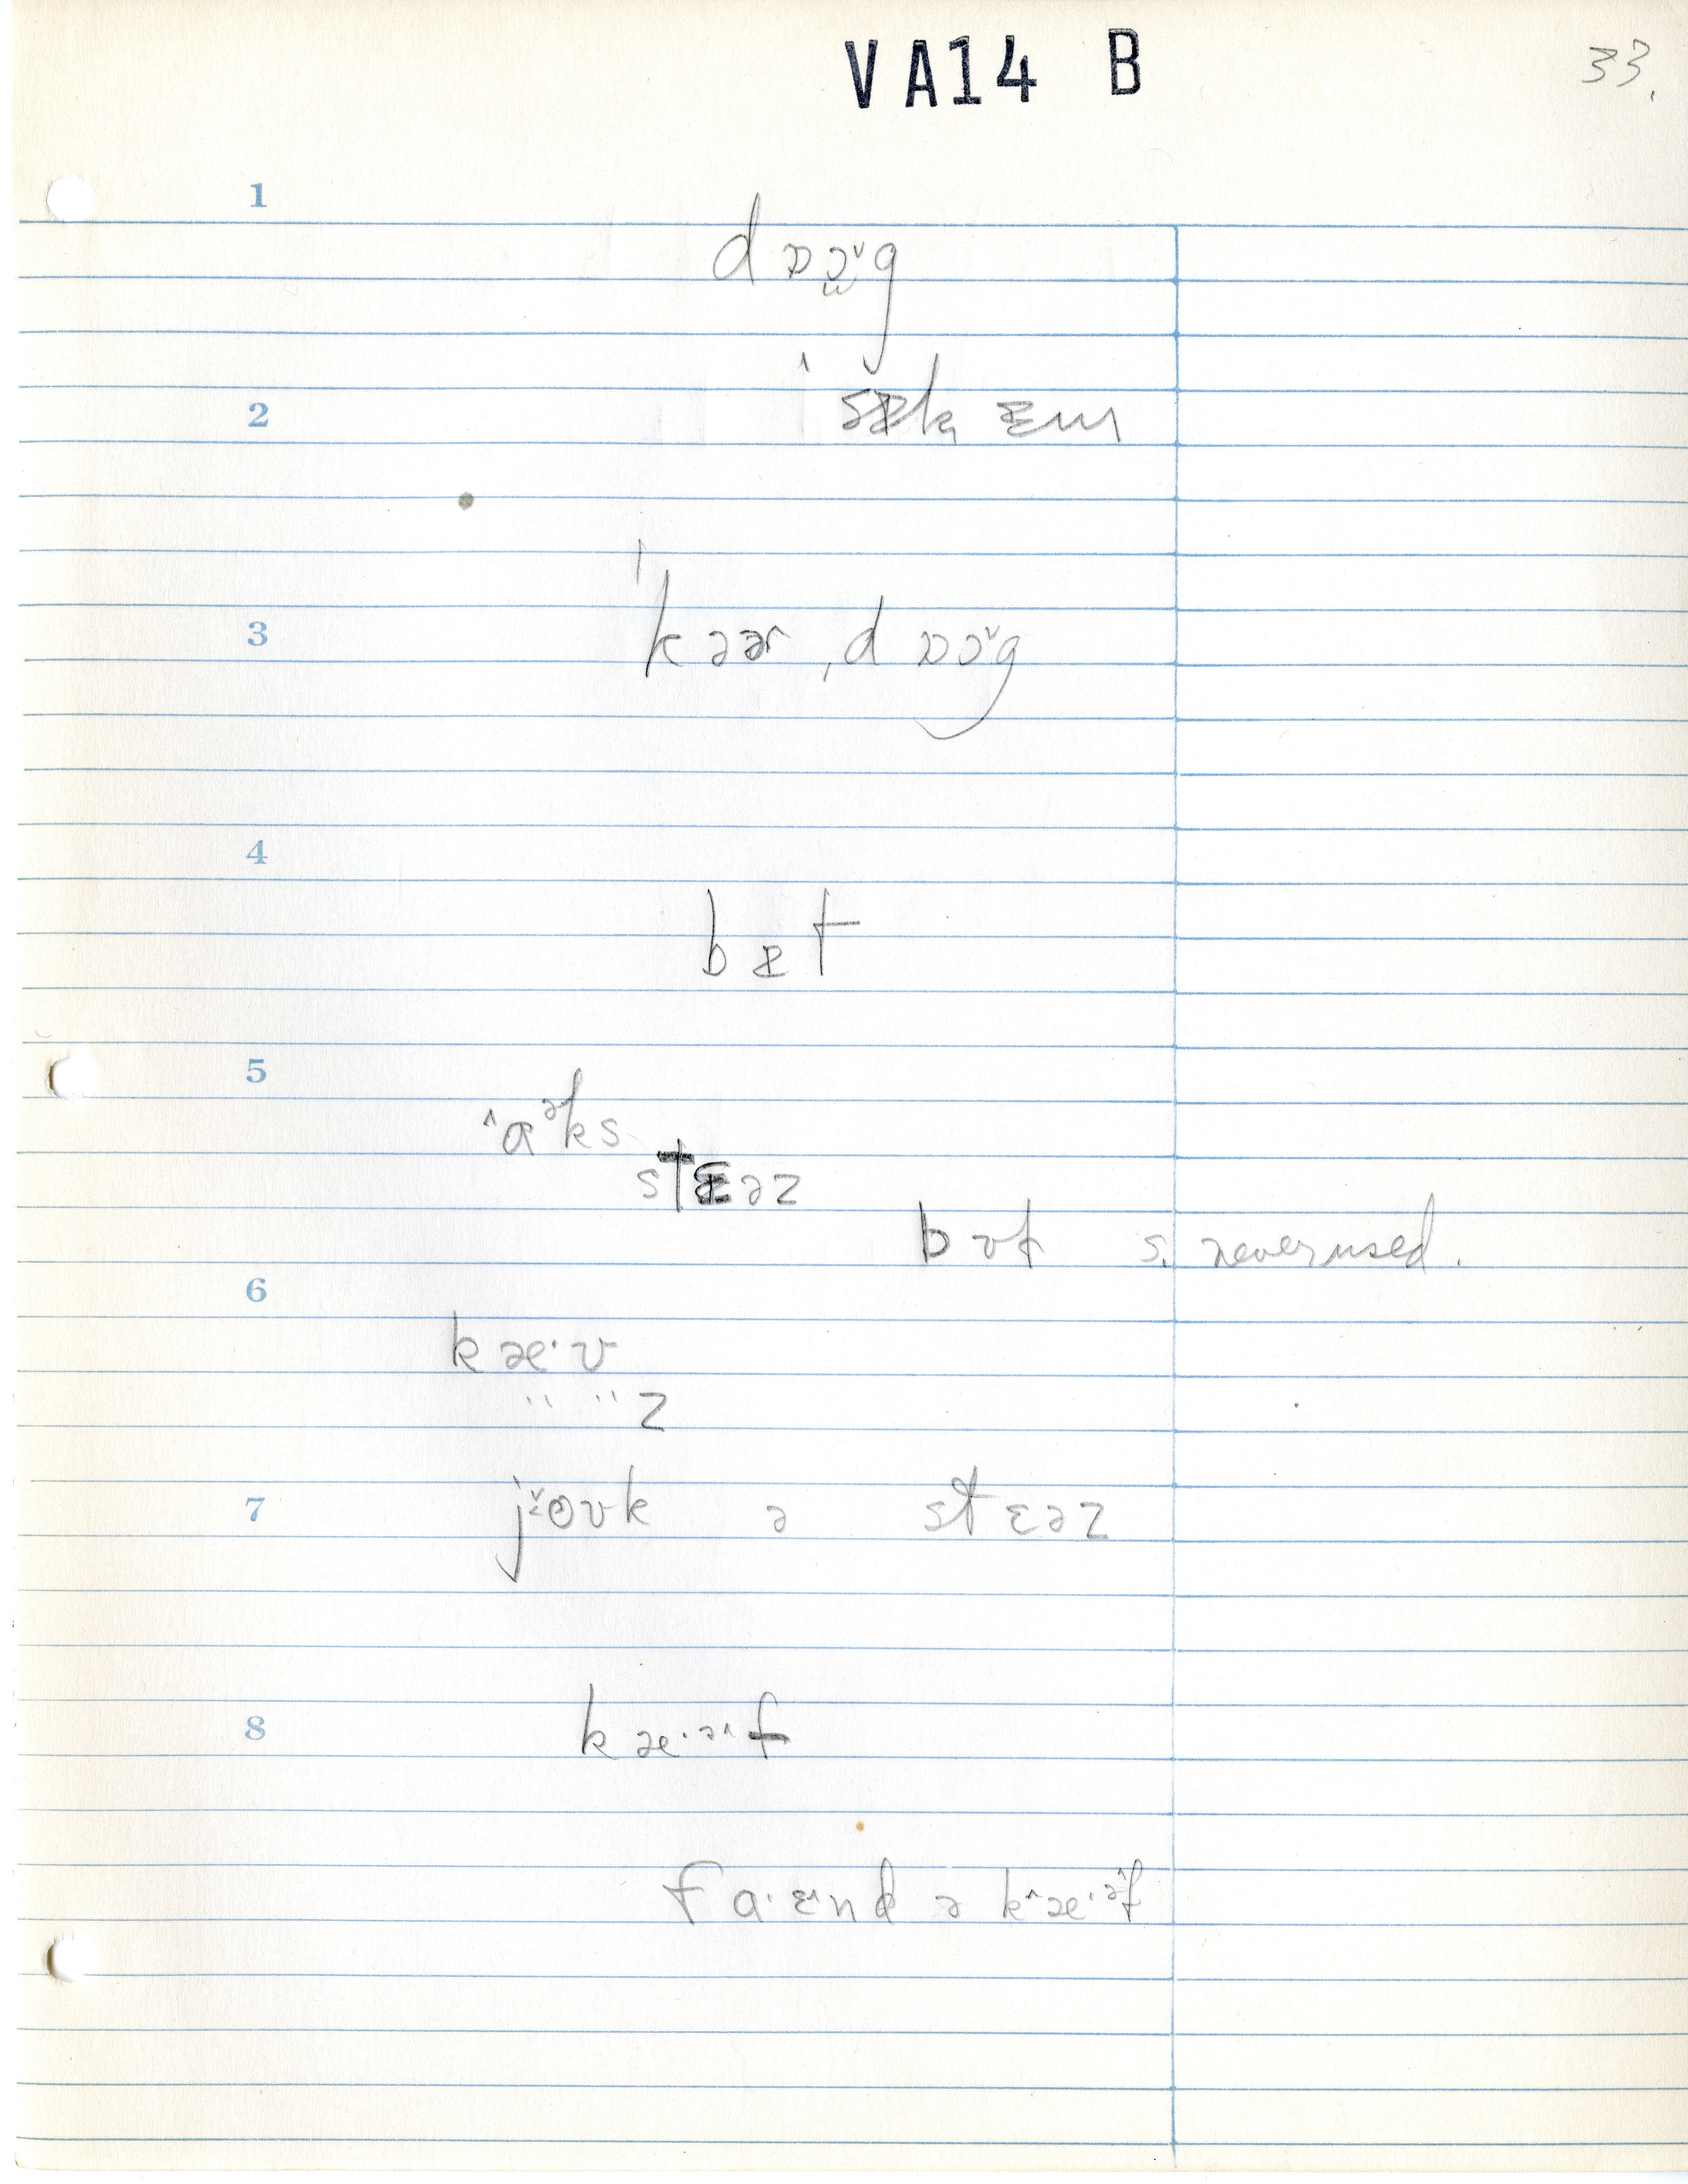 VA14 B
33.
1
dɒɔ̤ˇg
2
ˈsɪk ɛm
3
ˈkɜɚ ˌdɒɔˇg
4
bɪt
5
ˆɑᵊks
stɛəz
but s. never used.
6
kæ·v
" " z
7
jˇoʊk ə stɛəz
8
kæ·əˆf
fa·ɛˆnd ə kˆæ·əˆf